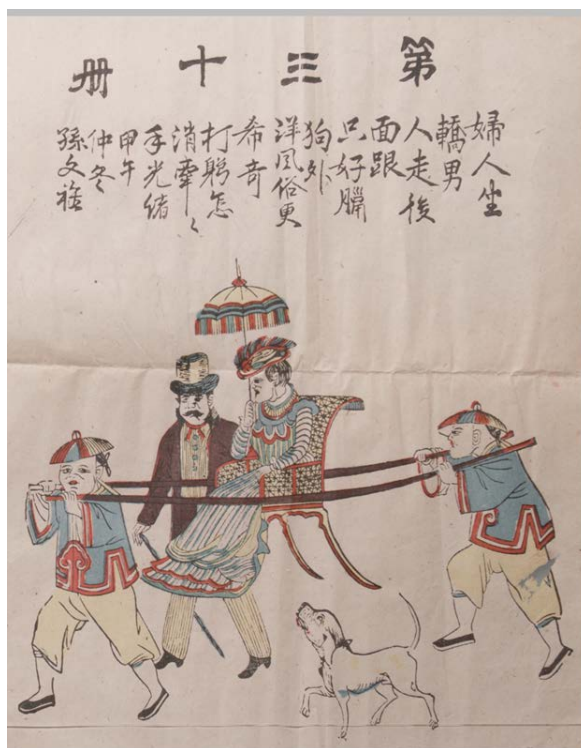 第三十册
婦人坐
轎男
人走後
面跟
只好臘
狗外
洋風俗更
希奇
打躬怎
消牽々
手光緒
甲午
仲冬
孫文雅